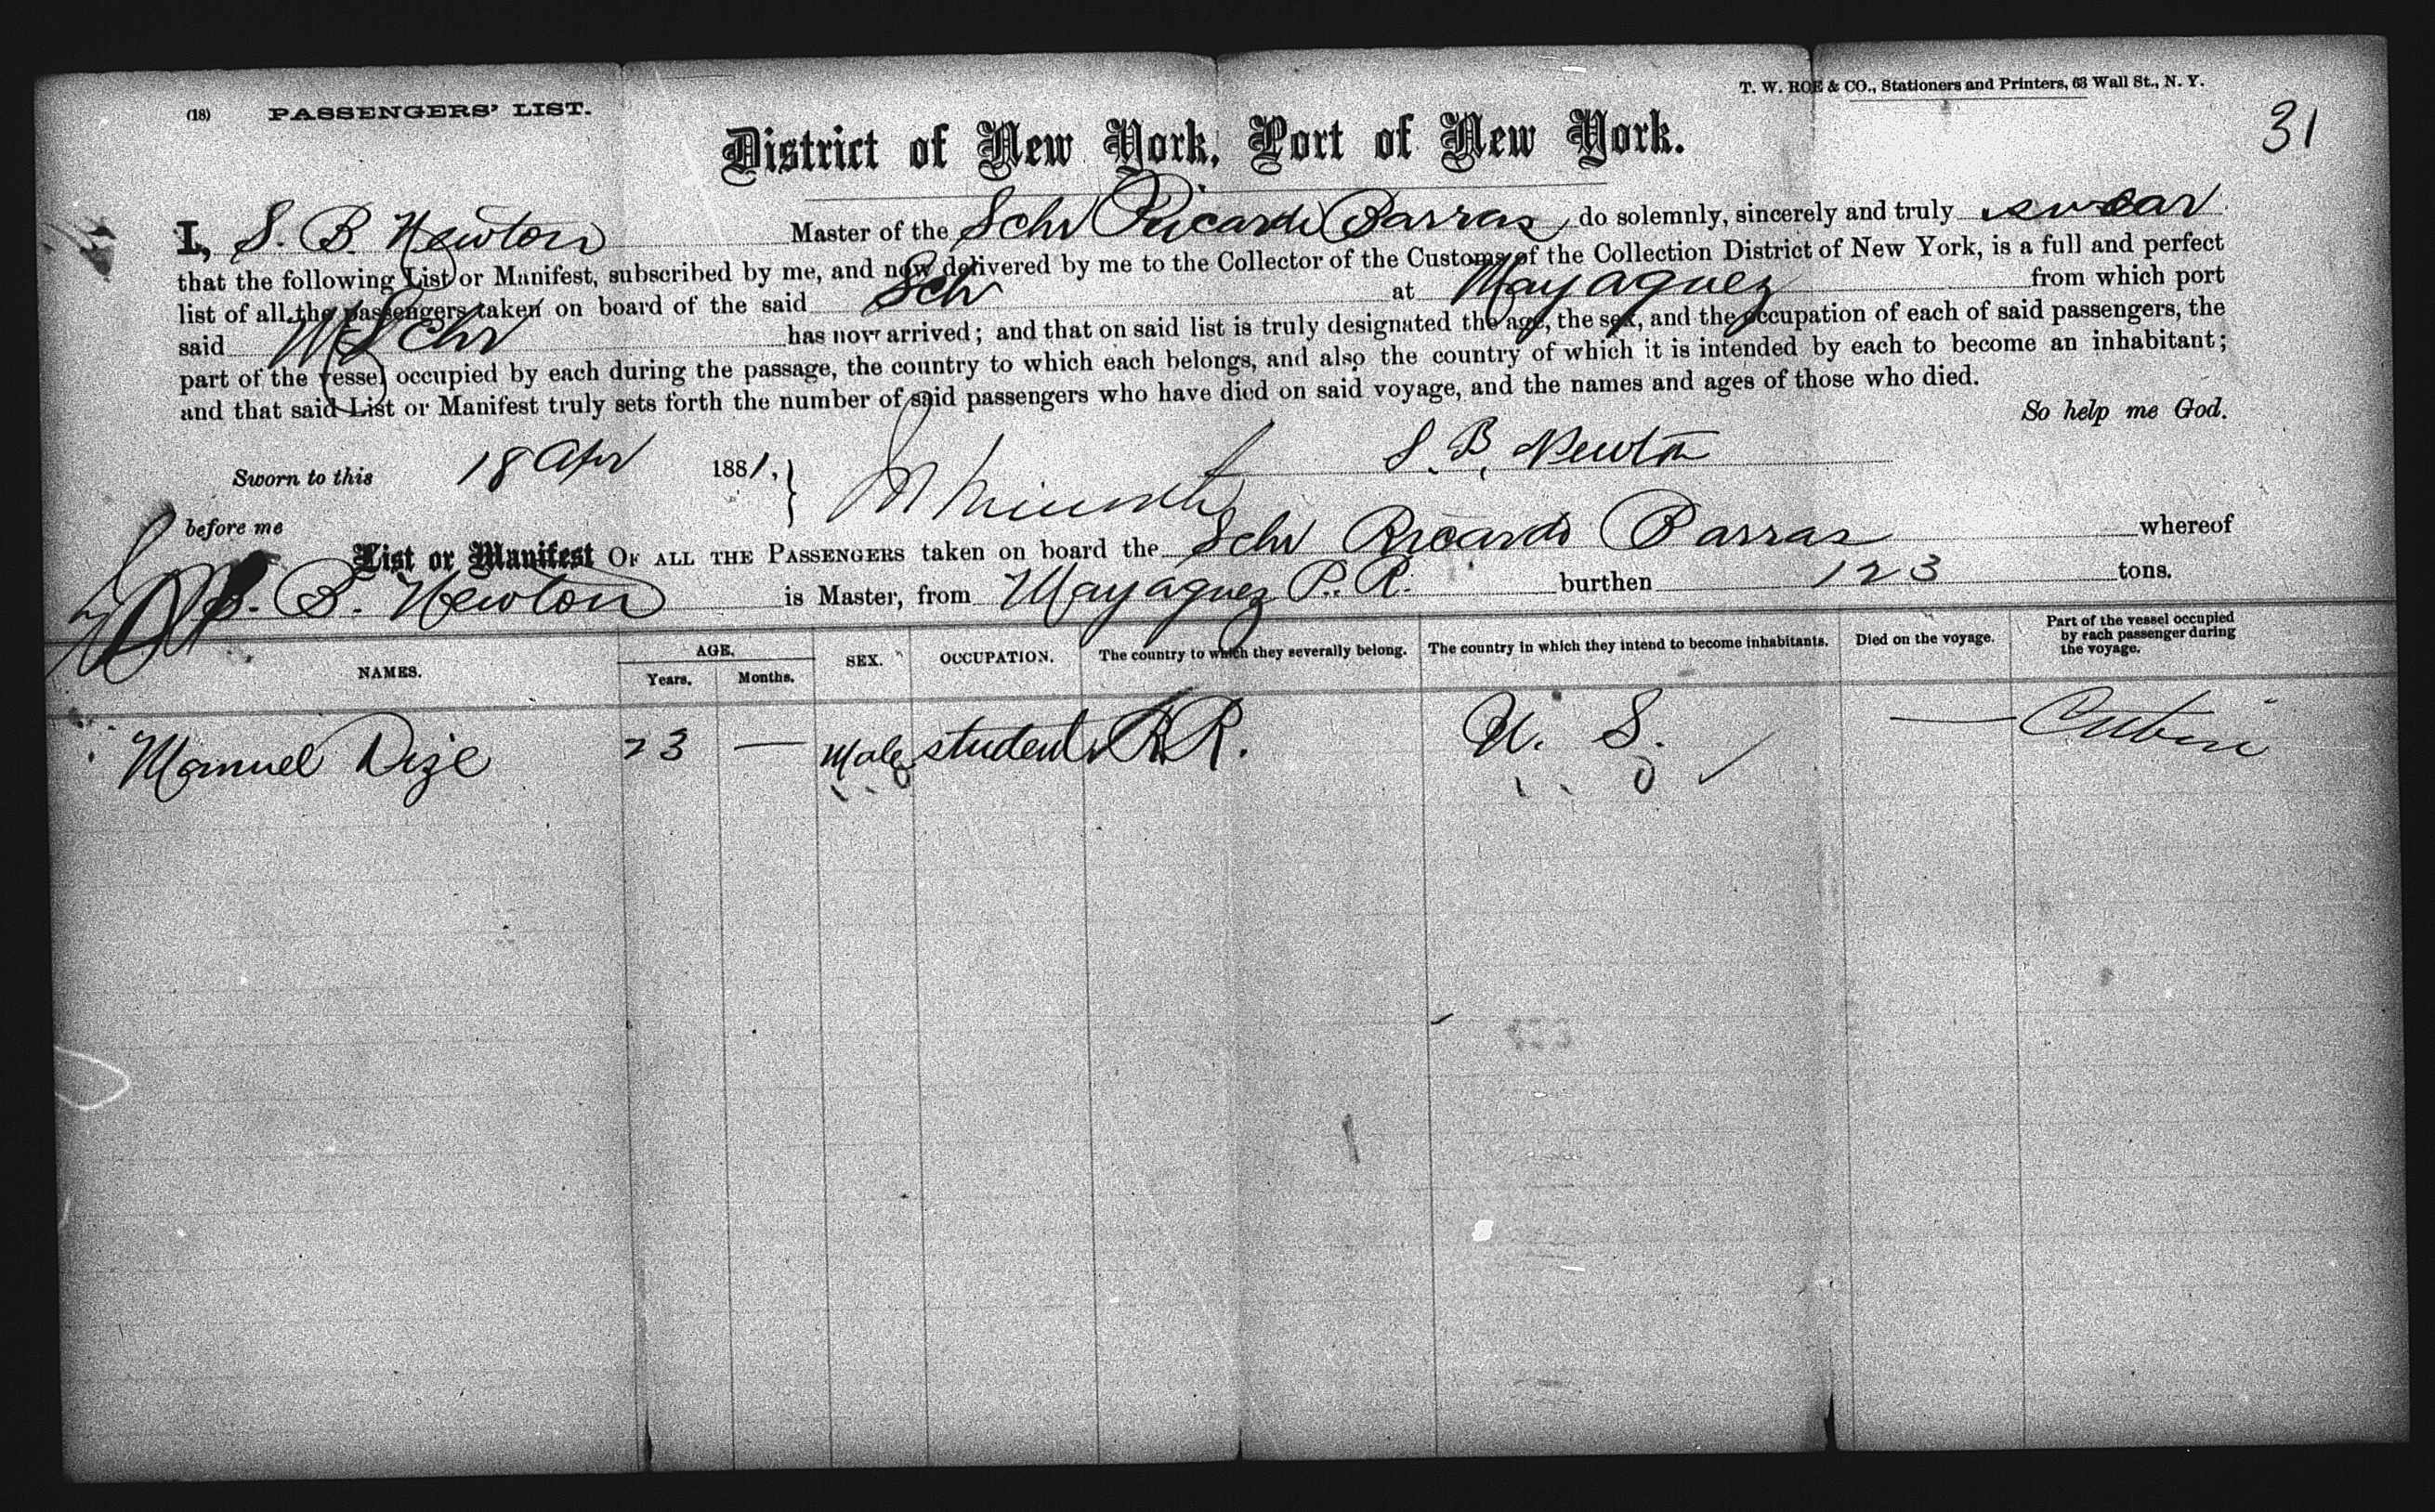 T. W. ROE & CO., Stationers and Printers, 63 Wall St., N. Y.
(18) PASSENGERS' LIST.
31
District of New York, Port of New York.
I, S. B. Newton Master of the Schr Ricardo Barras do solemnly, sincerely and truly swear
that the following List or Manifest, subscribed by me, and now delivered by me to the Collector of the Customs of the Collection District of New York, is a full and perfect
list of all the passengers taken on board of the said Schr at Mayaguez from which port
said Schr has now arrived; and that on said list is truly designated the age, the sex, and the occupation of each of said passengers, the
part of the vessel occupied by each during the passage, the country to which each belongs, and also the country of which it is intended by each to become an inhabitant;
and that said List or Manifest truly sets forth the number of said passengers who have died on said voyage, and the names and ages of those who died.
So help me God.
Sworn to this 18 Apr 1881, S. B. Newton
before me
List or Manifest OF ALL THE PASSENGERS taken on board the Schr Ricardo Barras whereof
S. B. Newton is Master, from Mayaguez P. R. burthen 123 tons.
NAMES. AGE. Years. Months. SEX. OCCUPATION. The country to which they severally belong. The country in which they intend to become inhabitants. Died on the voyage. Part of the vessel occupied by each passenger during the voyage.
Manuel Dize 23 — Male student P. R. U. S. — Cabin